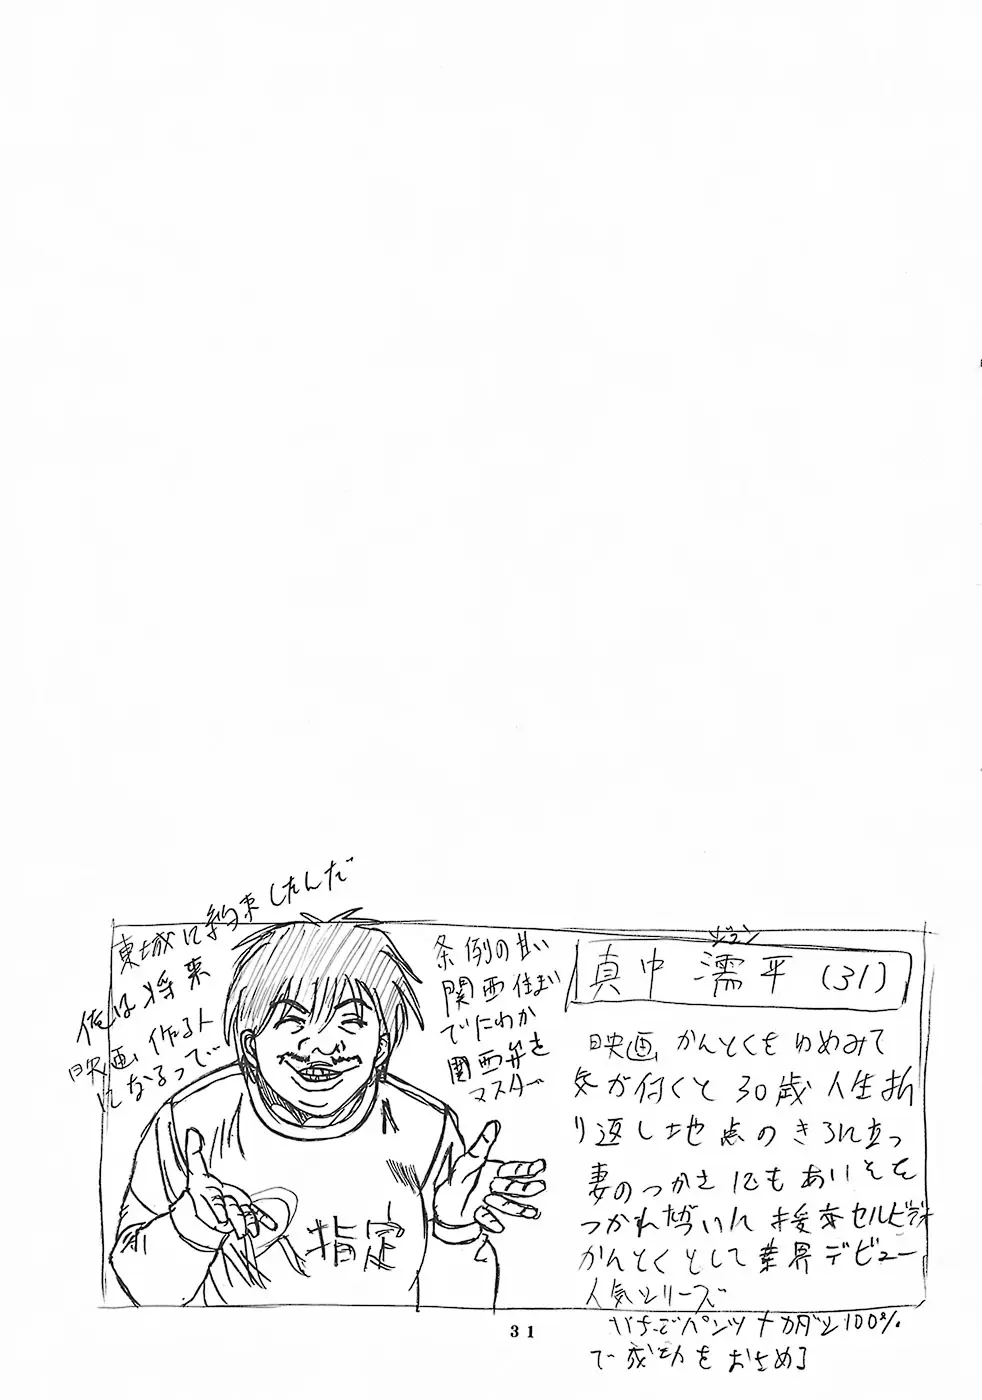 東城に約束したんだ
俺は将来
映画作る人
になるって
条例の甘い
関西住まい
でにわか
関西弁を
マスター
ジュン
真中 濡平 (31)
映画かんとくをゆめみて
気が付くと30歳人生折
り返し地点のきろに立つ
妻のつかさにもあいそを
つかれ
かんとくとして業界デビュー
人気シリーズ
いちごパンツナカダシ100%
で成功をおさめる
指定
31